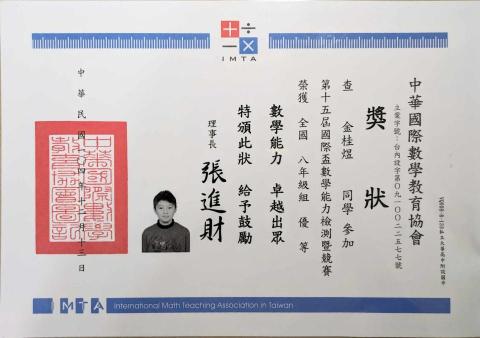 IMTA
中華國際數學教育協會
立案字號：台內設字第〇九一〇〇二二五七七號
獎狀
查 金桂煜 同學 參加
第十五屆國際盃數學能力檢測暨競賽
榮獲 全國 八年級組 優 等
數學能力 卓越出眾
特頒此狀 給予鼓勵
理事長 張進財
中華民國一〇四年十二月十三日
IMTA International Math Teaching Association in Taiwan